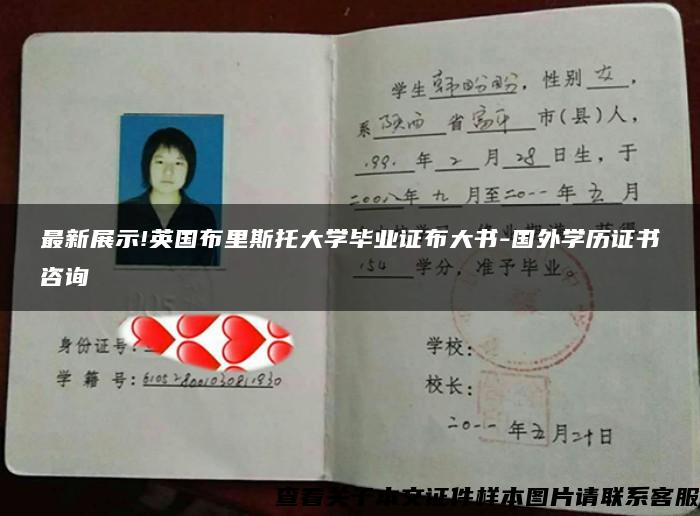 学生韩盼盼，性别女，
系陕西省富平市(县)人，
1991年2月28日生，于
2008年九月至二〇一一年五月
最新展示!英国布里斯托大学毕业证布大书-国外学历证书
咨询
154学分，准予毕业。
身份证号：
学籍号：
学校：
校长：
二〇一一年五月二十日
查看关于本文证件样本图片请联系客服